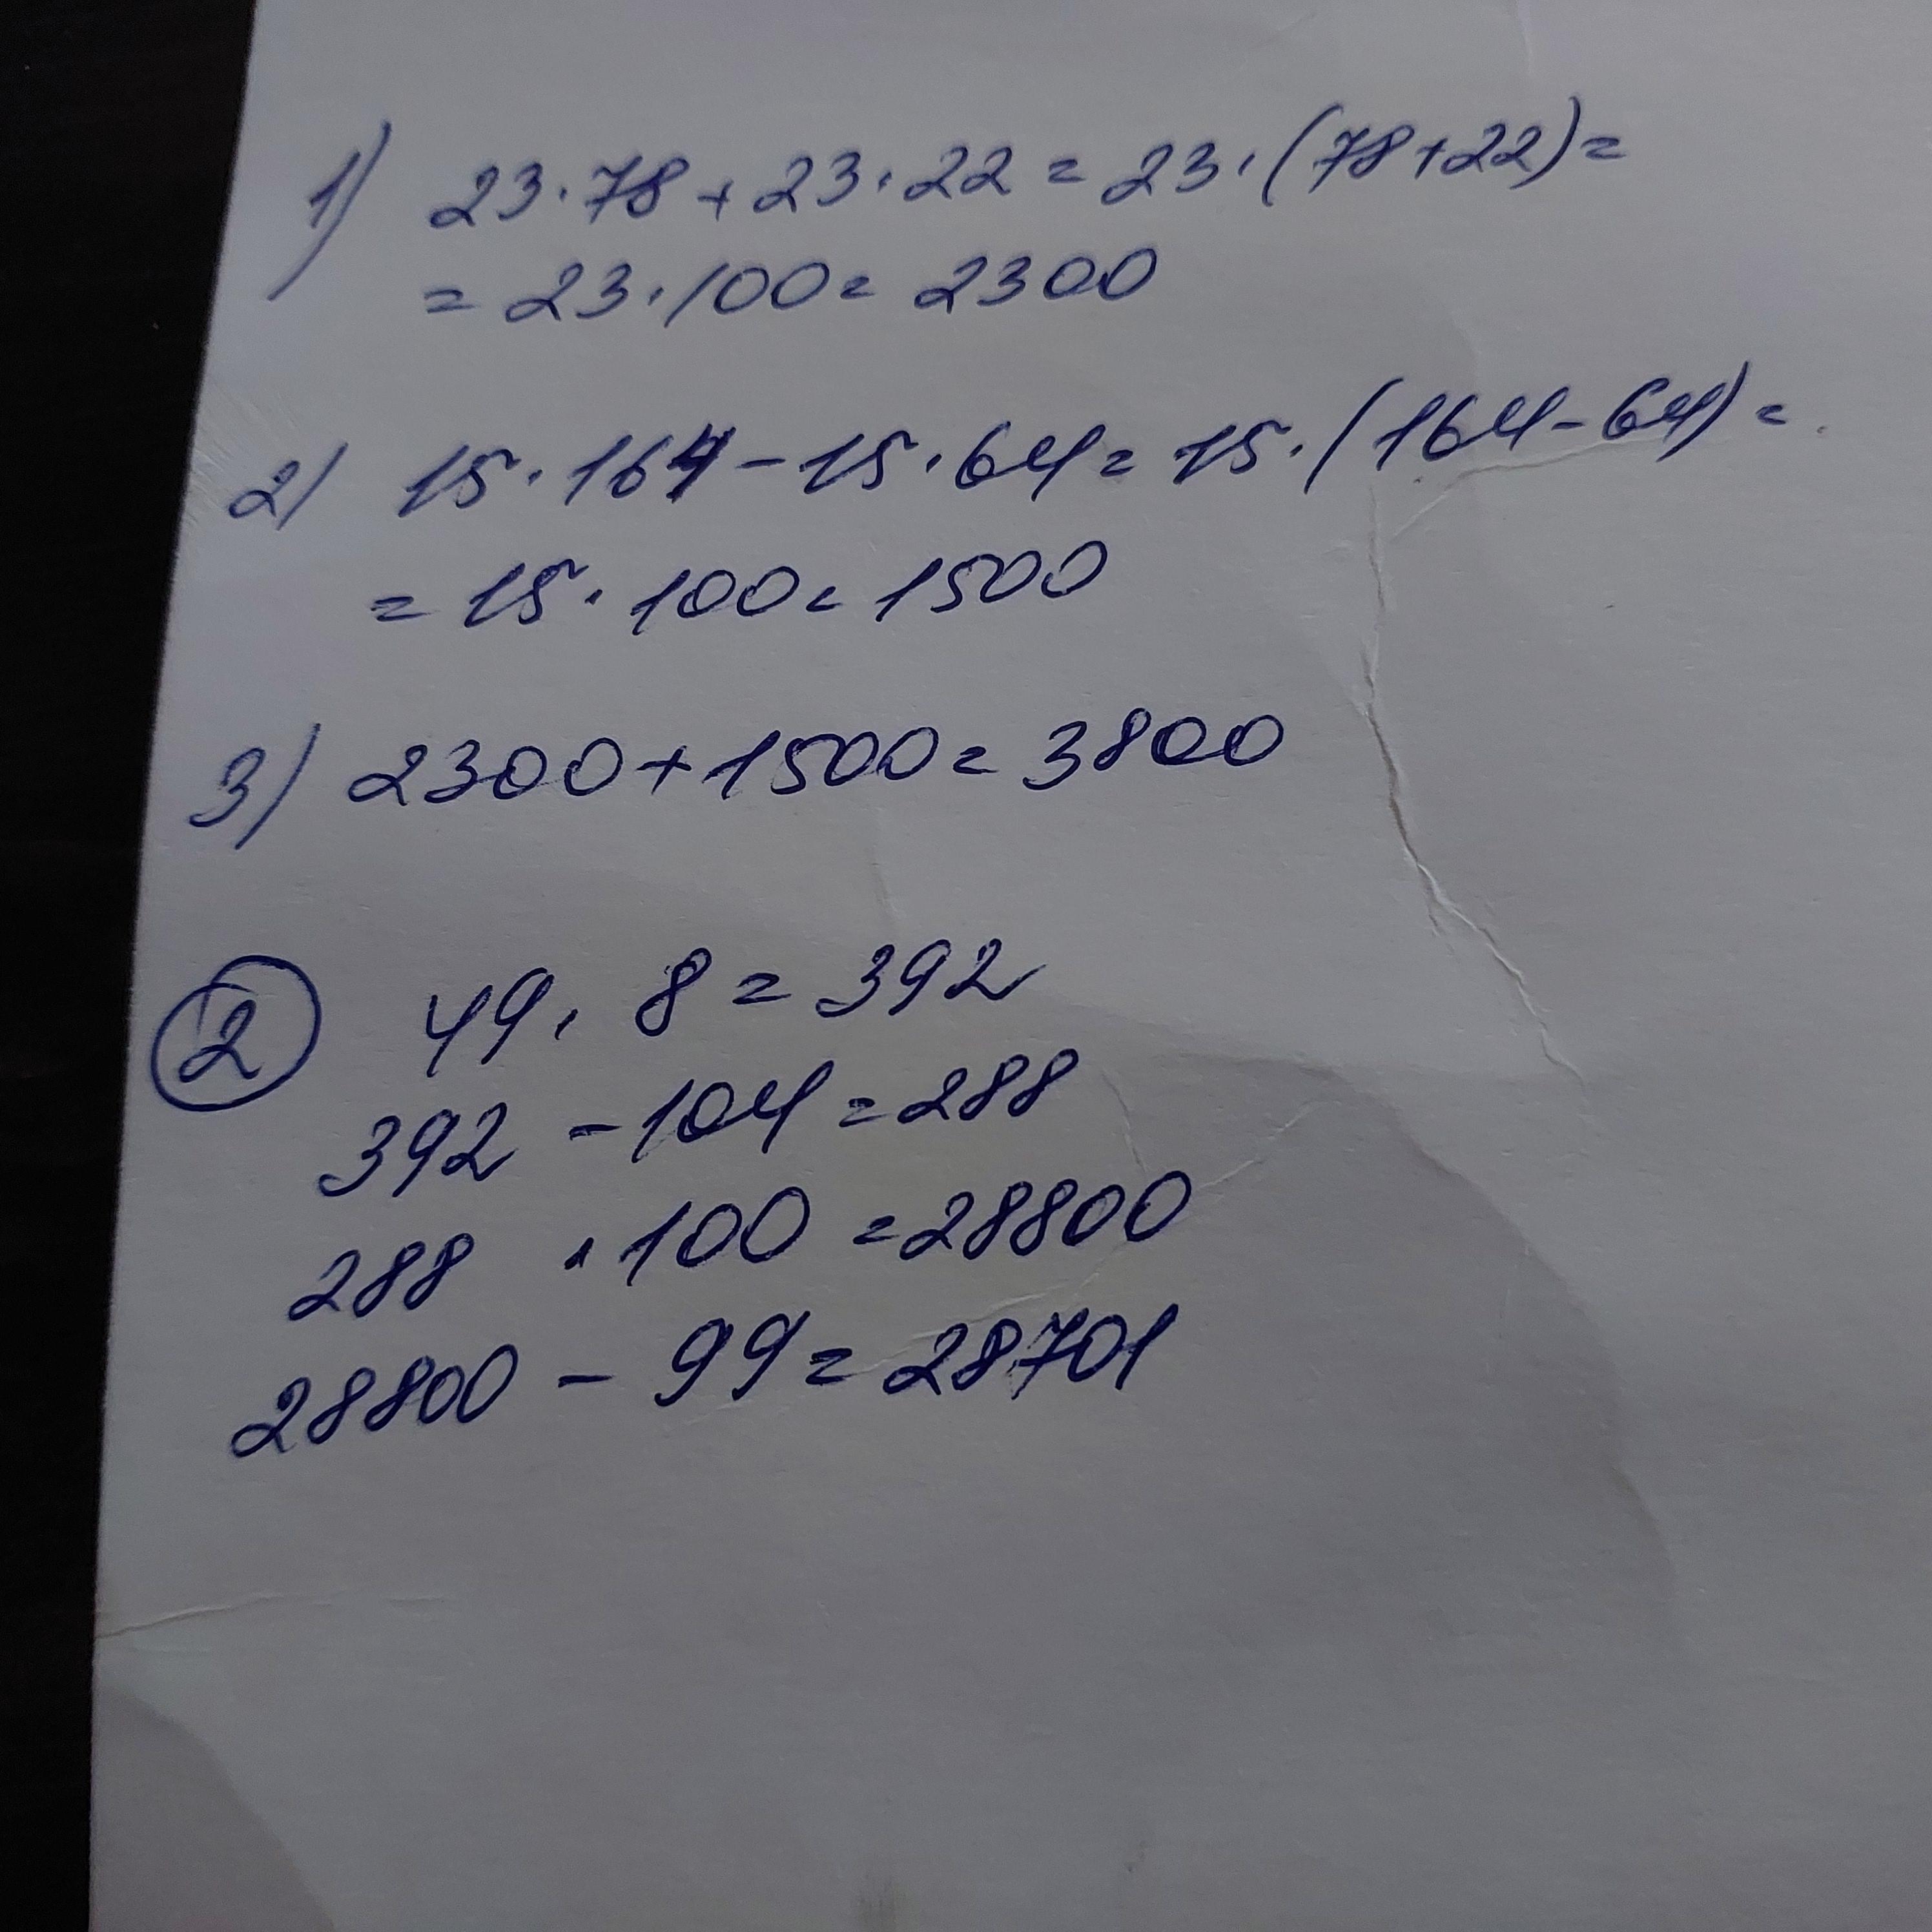 1) 23·78+23·22=23·(78+22)=
=23·100=2300
2) 15·164-15·64=15·(164-64)=
=15·100=1500
3) 2300+1500=3800
2 49·8=392
392-104=288
288·100=28800
28800-99=28701